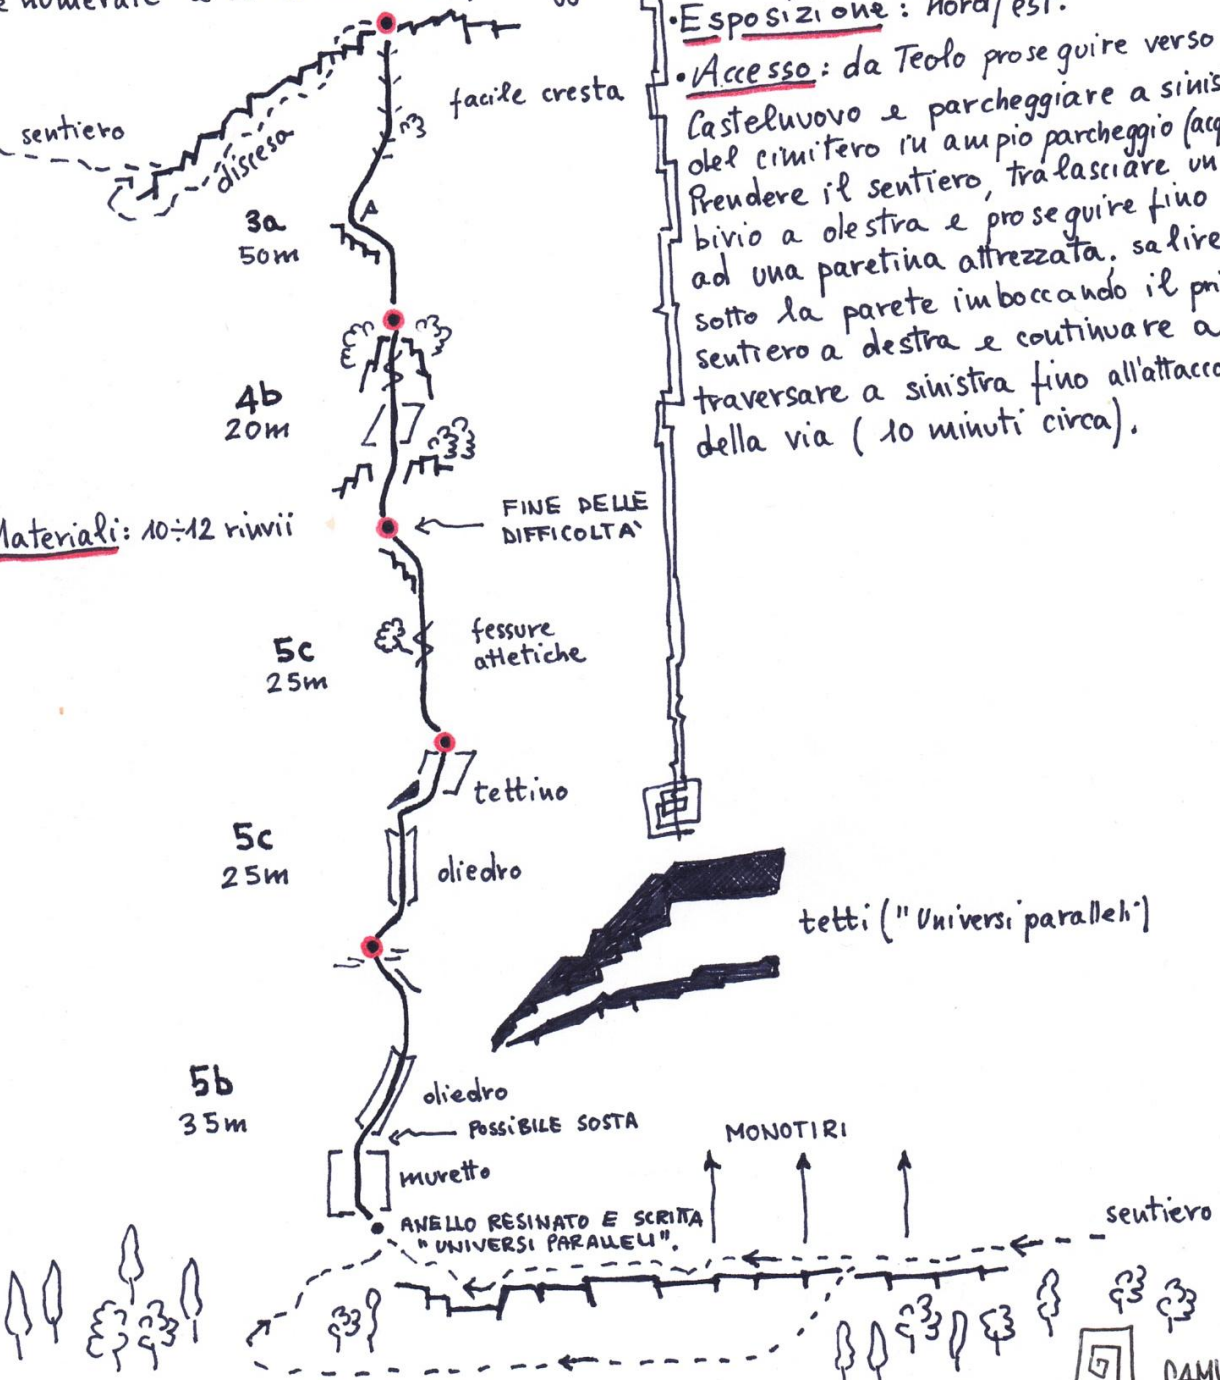 Esposizione: nord/est.
• Accesso: da Teolo proseguire verso
Castelnuovo e parcheggiare a sinis
del cimitero in ampio parcheggio (acq
Prendere il sentiero, tralasciare un
bivio a destra e proseguire fino
ad una paretina attrezzata. salire
sotto la parete imboccando il pri
sentiero a destra e continuare a
traversare a sinistra fino all'attacco
della via (10 minuti circa).
facile cresta
sentiero
discesa
3a
50m
4b
20m
FINE DELLE
DIFFICOLTA'
Materiali: 10÷12 rinvii
5c
25m
fessure
atletiche
tettino
5c
25m
diedro
tetti ("Universi paralleli")
5b
35m
diedro
POSSIBILE SOSTA
MONOTIRI
muretto
ANELLO RESINATO E SCRITTA
"UNIVERSI PARALLELI".
sentiero